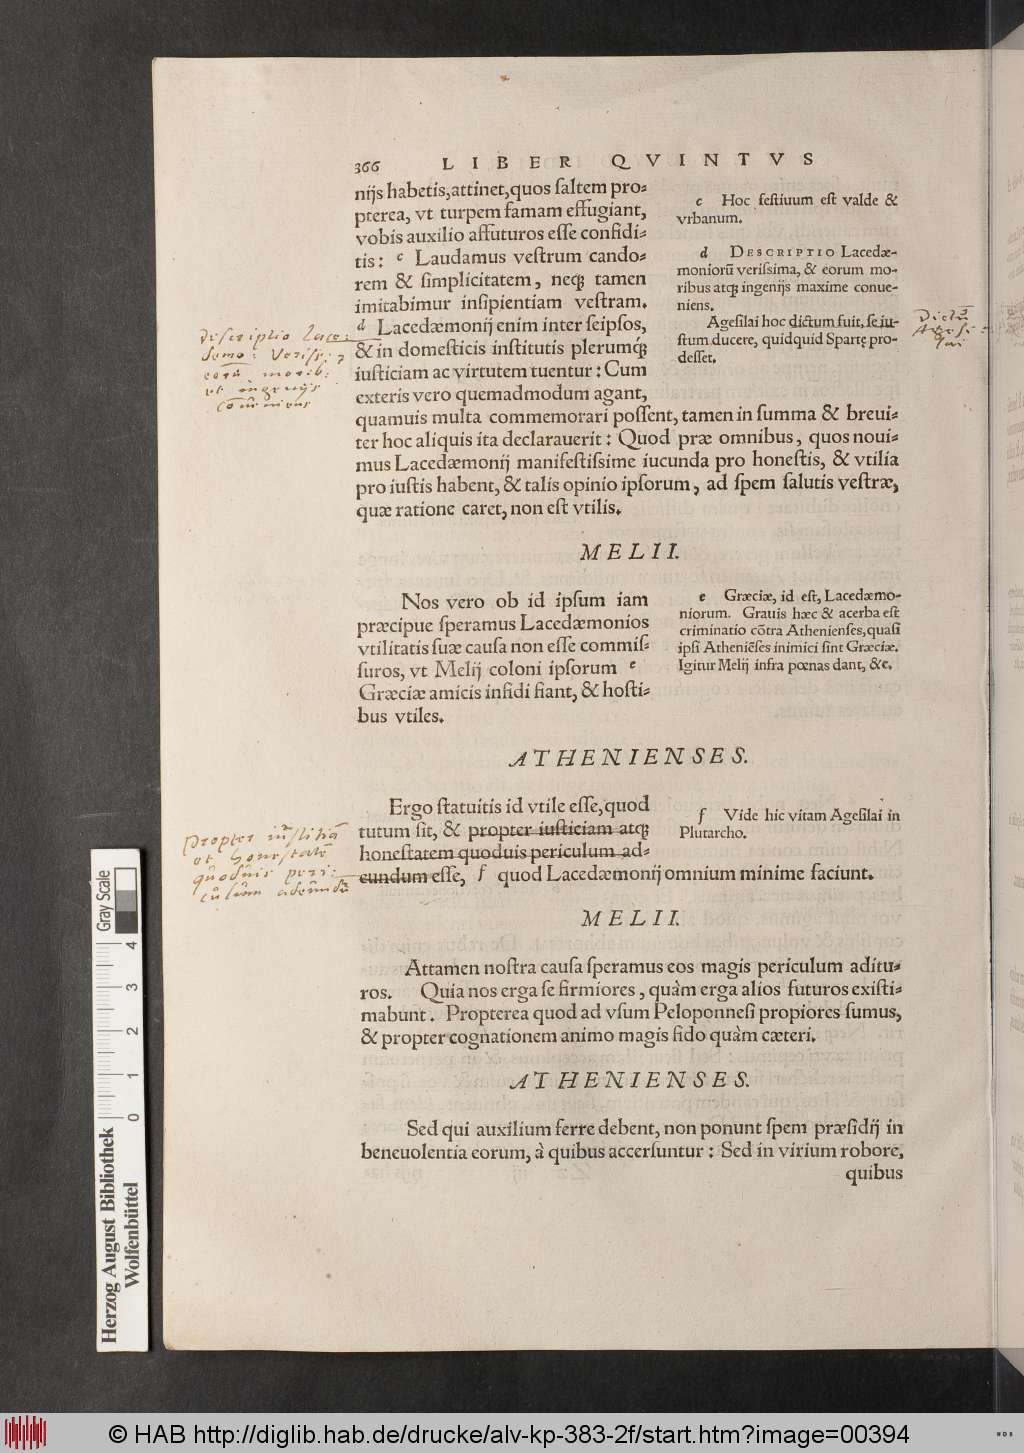 366 LIBER QVINTVS
nijs habetis, attinet, quos ſaltem pro⸗
pterea, vt turpem famam effugiant,
vobis auxilio affuturos eſſe confidi⸗
tis: c Laudamus veſtrum cando⸗
rem & ſimplicitatem, neqꝫ tamen
imitabimur inſipientiam veſtram.
d Lacedæmonij enim inter ſeipſos,
& in domeſticis inſtitutis plerumqꝫ
iuſticiam ac virtutem tuentur: Cum
exteris vero quemadmodum agant,
quamuis multa commemorari poſſent, tamen in ſumma & breui⸗
ter hoc aliquis ita declarauerit: Quod præ omnibus, quos noui⸗
mus Lacedæmonij manifeſtiſsime iucunda pro honeſtis, & vtilia
pro iuſtis habent, & talis opinio ipſorum, ad ſpem ſalutis veſtræ,
quæ ratione caret, non eſt vtilis.
c Hoc feſtiuum eſt valde &
vrbanum.
d DESCRIPTIO Lacedæ-
moniorū veriſsima, & eorum mo-
ribus atqꝫ ingenijs maxime conue-
niens.
Ageſilai hoc dictum fuit, ſe iu-
ſtum ducere, quidquid Spartę pro-
deſſet.
Dictū
Ageſi-
lai
deſcriptio Lace:
demo: Veriſſ:
eorū morib:
et ingenijs
cōueniens
MELII.
Nos vero ob id ipſum iam
præcipue ſperamus Lacedæmonios
vtilitatis ſuæ cauſa non eſſe commiſ⸗
ſuros, vt Melij coloni ipſorum e
Græciæ amicis infidi fiant, & hoſti⸗
bus vtiles.
e Græciæ, id eſt, Lacedæmo-
niorum. Grauis hæc & acerba eſt
criminatio cōtra Athenienſes, quaſi
ipſi Atheniēſes inimici ſint Græciæ.
Igitur Melij infra pœnas dant, &c.
ATHENIENSES.
Ergo ſtatuitis id vtile eſſe, quod
tutum ſit, & propter iuſticiam atqꝫ
honeſtatem quoduis periculum ad⸗
eundum eſſe, f quod Lacedæmonij omnium minime faciunt.
f Vide hic vitam Ageſilai in
Plutarcho.
propter iuſtitiā
et honeſtatē
quoduis peri:
culum adeundū
MELII.
Attamen noſtra cauſa ſperamus eos magis periculum aditu⸗
ros. Quia nos erga ſe firmiores, quàm erga alios futuros exiſti⸗
mabunt. Propterea quod ad vſum Peloponneſi propiores ſumus,
& propter cognationem animo magis fido quàm cæteri.
ATHENIENSES.
Sed qui auxilium ferre debent, non ponunt ſpem præſidij in
beneuolentia eorum, à quibus accerſuntur: Sed in virium robore,
quibus
Herzog August Bibliothek
Wolfenbüttel
Gray Scale
0 1 2 3 4
© HAB http://diglib.hab.de/drucke/alv-kp-383-2f/start.htm?image=00394